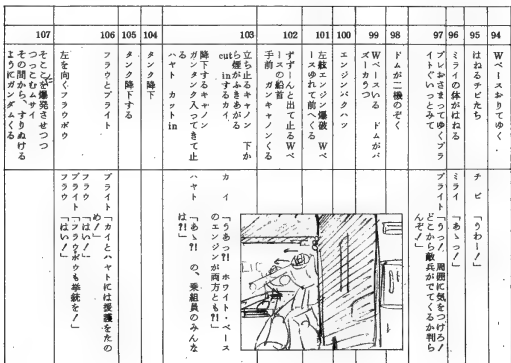 94
Wベースおりてゆく
95
はねるチビたち
チビ
「うわー!」
96
ミライの体がはねる
ミライ
「あゝっ!」
97
ブレおさまってゆくブラ
イトぐいっとみて
ブライト「うっ!、周囲に気をつけろ!
どこから敵兵がでてくるか判ら
んぞ!」
98
ドムが二機のぞく
99
Wベースいる ドムがバ
ズーカうつ
100
エンジンバクハツ
101
左舷エンジン爆破 Wベ
ースゆれて前へくる
102
ずずーんと出て止るWベ
ースの船首
手前 ガンキャノンくる
103
立ち止るキャノン 下か
ら煙がふきあがる
cut inするカイ、
降下するキャノン
ガンタンク入ってきて止
る
ハヤト カットin
カイ
「うあっ?! ホワイト・ベース
のエンジンが両方とも?!」
ハヤト
「あゝ?! の、乗組員のみんな
は?!」
104
タンク降下
105
タンク降下する
106
フラウとブライト
左を向くフラウボウ
ブライト「カイとハヤトには援護をたの
め!」
フラウ
「はい!」
ブライト「フラウボウも拳銃を!」
フラウ
「はい!」
107
そこを爆発させつつ
つっこむムサイ
その間から、すりぬける
ようにガンダムくる